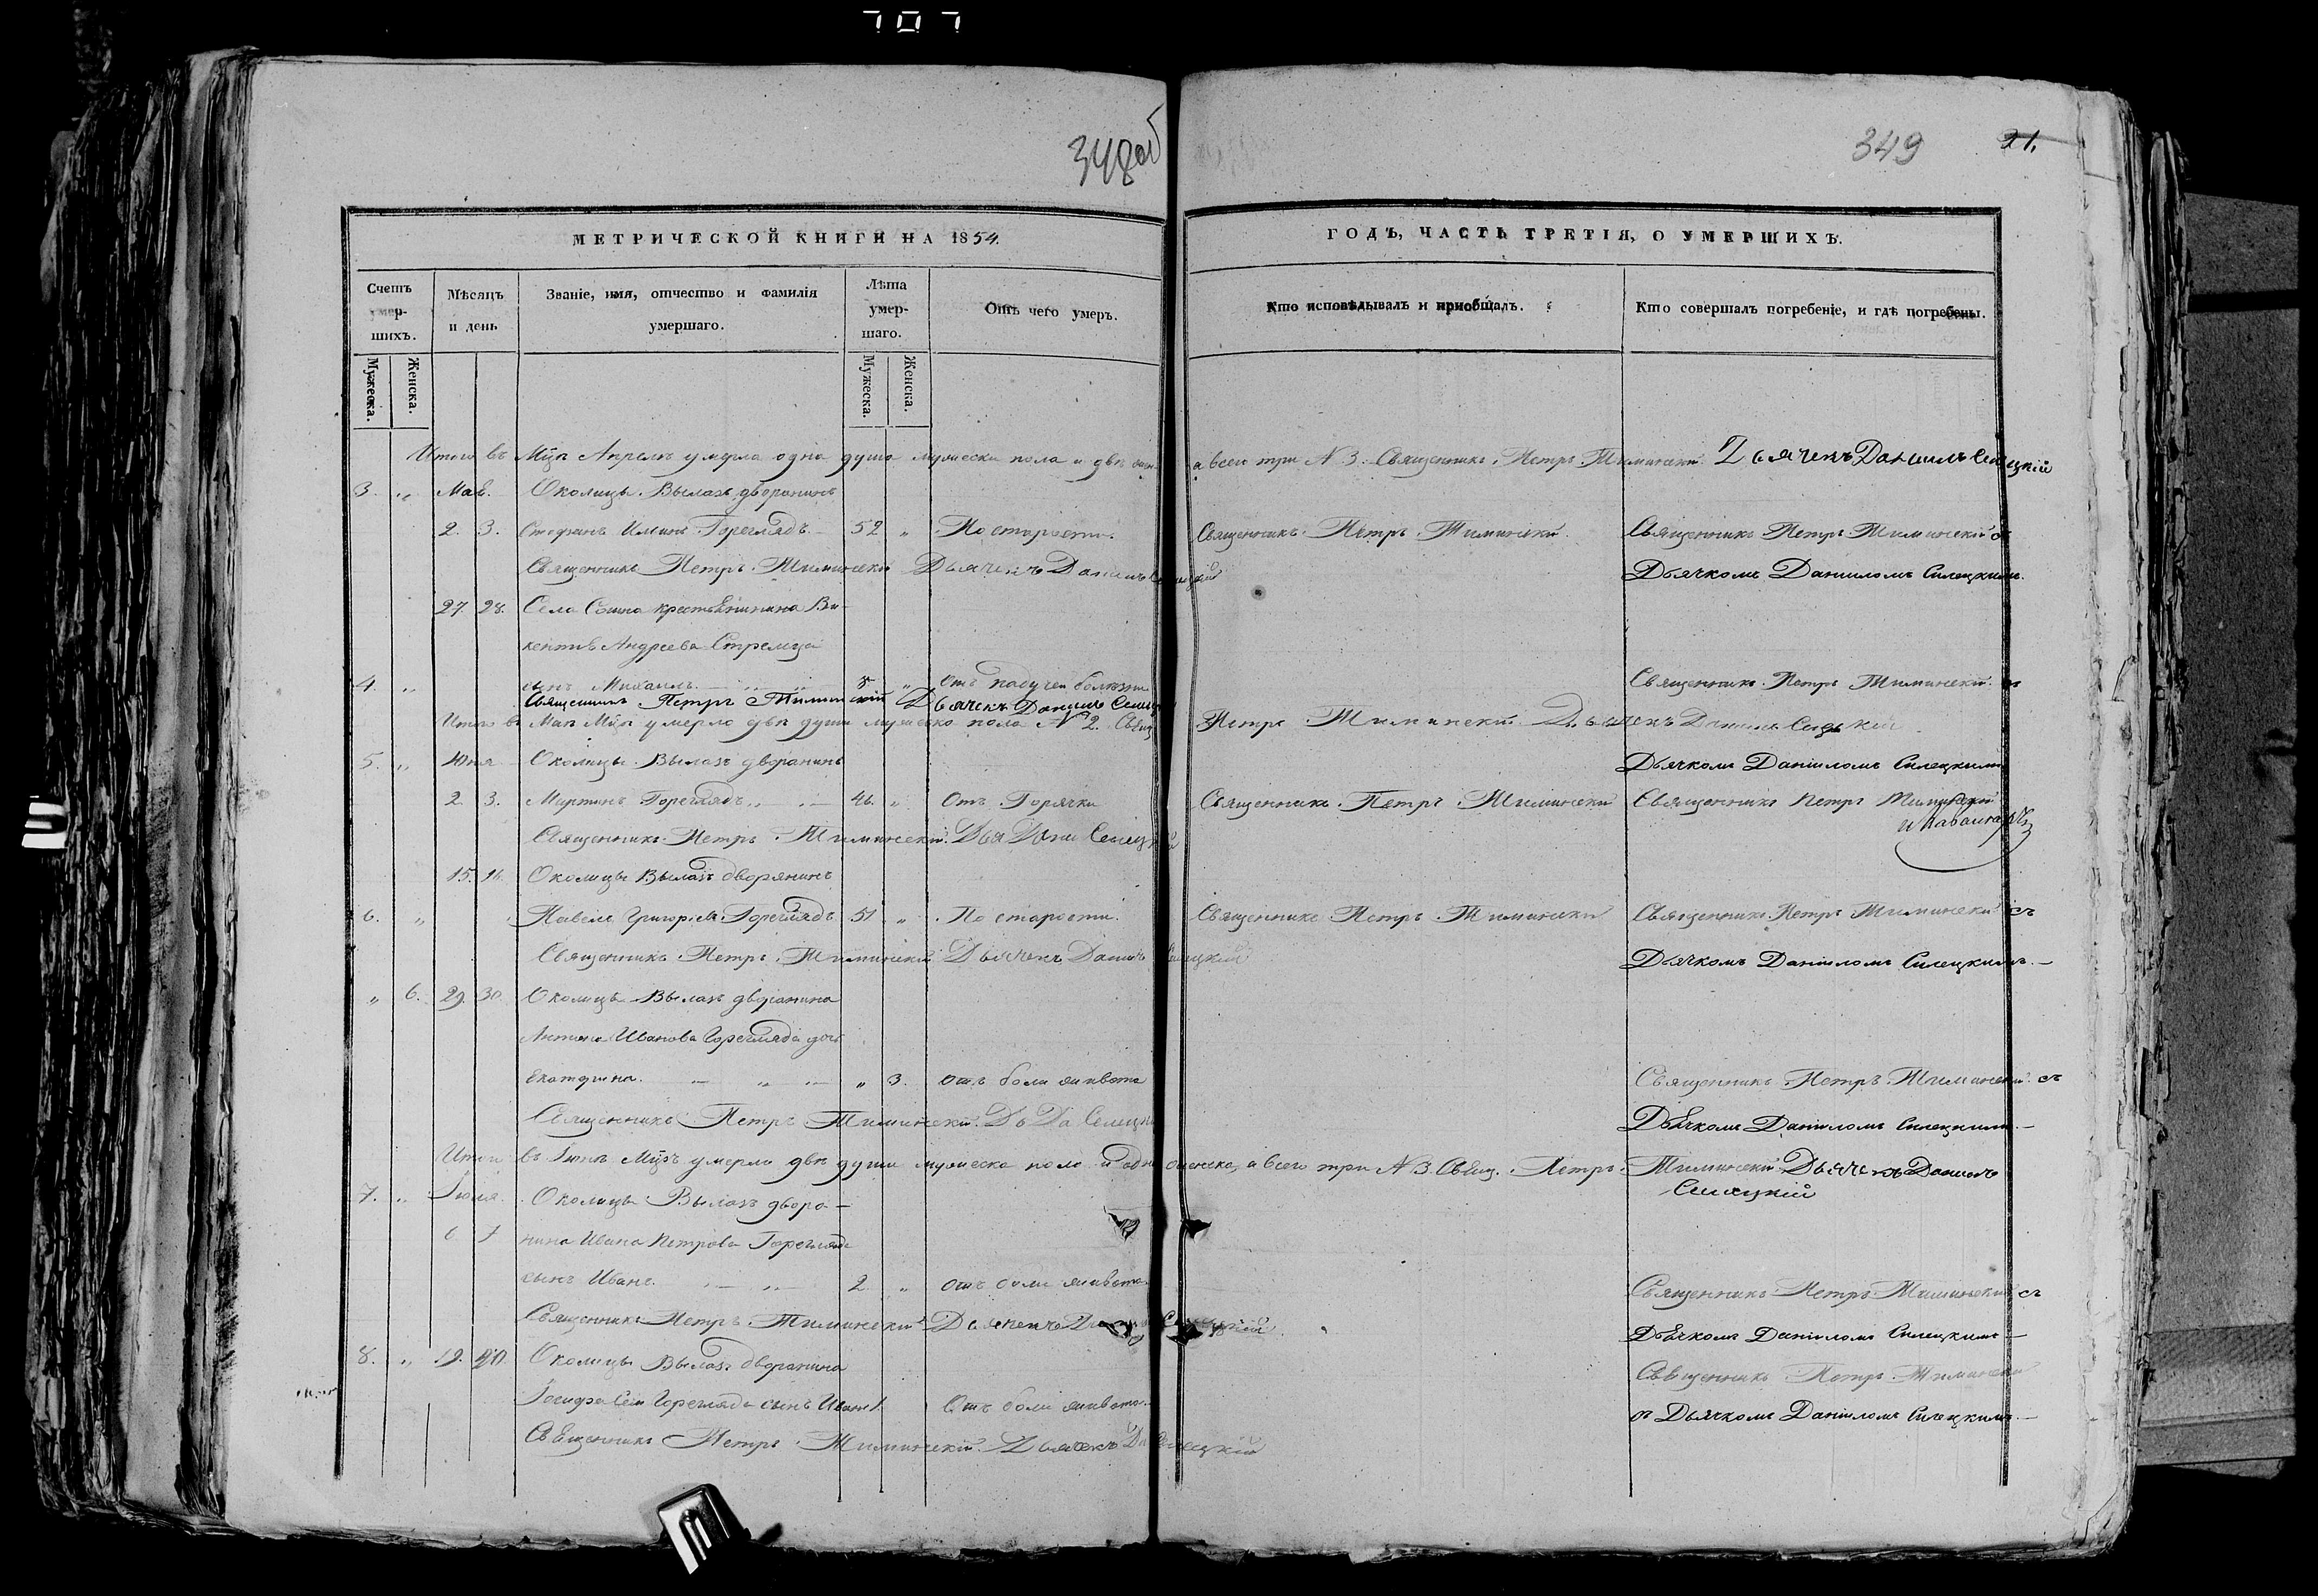 707
348об
349 21.
МЕТРИЧЕСКОЙ КНИГИ НА 1854.
ГОДЪ, ЧАСТЬ ТРЕТІЯ, О УМЕРШИХЪ.
Счетъ умер-шихъ.
Мѣсяцъ и день
Званіе, имя, отчество и фамилія умершаго.
Лѣта умер-шаго.
Отъ чего умеръ.
Кто исповѣдывалъ и приобщалъ.
Кто совершалъ погребеніе, и гдѣ погребены.
Мужеска. Женска.
Мужеска. Женска.
Итого въ Мцѣ Апрелѣ умерла одна душа мужеска пола и двѣ а всего три N 3. Священникъ Петръ Тиминскій Дьячекъ Данилъ Силецкій
3. „ Мая. Околицы Вылазъ дворанинъ
2. 3. Стефанъ Горегладъ 52 „ По старости. Священникъ Петръ Тиминскій Священникъ Петръ Тиминскій съ
Священникъ Петръ Тиминскій Дьячекъ Данилъ Дьячкомъ Даніиломъ Силецкимъ.
27. 28. Села крестьянина Ви-
кентія Андреева Стрельца
4. „ сынъ Михаилъ 8 „ отъ падучей болѣзни Священникъ Петръ Тиминскій съ
Священникъ Петръ Тиминскій Дьячекъ Данилъ
Итого въ Маѣ Мцѣ умерло двѣ души мужеска пола N 2. Свящ Петръ Тиминскій Дьячекъ Данилъ
5. „ Юня Околицы Вылазъ дворанинъ Дьячкомъ Даніиломъ Силецкимъ
2. 3. Мартинъ Горегладъ 46. „ Отъ Горячки Священникъ Петръ Тиминскій Священникъ Петръ Тиминскій
Священникъ Петръ Тиминскій Дья Дани
15. 16. Околицы Вылазъ дворянинъ
6. „ Павелъ Григорьевъ Горегладъ 51 „ По старости. Священникъ Петръ Тиминскій Священникъ Петръ Тиминскій съ
Священникъ Петръ Тиминскій Дьячекъ Данилъ Дьячкомъ Даніиломъ Силецкимъ.
„ 6. 29. 30. Околицы Вылазъ дворанина
Антона Иванова Горегляда дочь
Екатерина „ 3. отъ боли живота Священникъ Петръ Тиминскій съ
Священникъ Петръ Тиминскій Дь Да Дьячкомъ Даніиломъ Силецкимъ.
Итого въ Іюнѣ Мцѣ умерло двѣ души мужеска пола и одна женска, а всего три N 3. Свящ. Петръ Тиминскій Дьячекъ Данилъ
7. „ Іюля Околицы Вылазъ двора-
6 7 нина Ивана Петрова Горегляда
сынъ Иванъ 2 „ отъ боли живота. Священникъ Петръ Тиминскій съ
Священникъ Петръ Тиминскій Дьячекъ Дьячкомъ Даніиломъ Силецкимъ
8. „ 19. 20. Околицы Вылазъ дворанина Священникъ Петръ Тиминскій
Іосифа Горегляда сынъ Иванъ 1 Отъ боли живота. съ Дьячкомъ Даніиломъ Силецкимъ.
Священникъ Петръ Тиминскій Дьячекъ